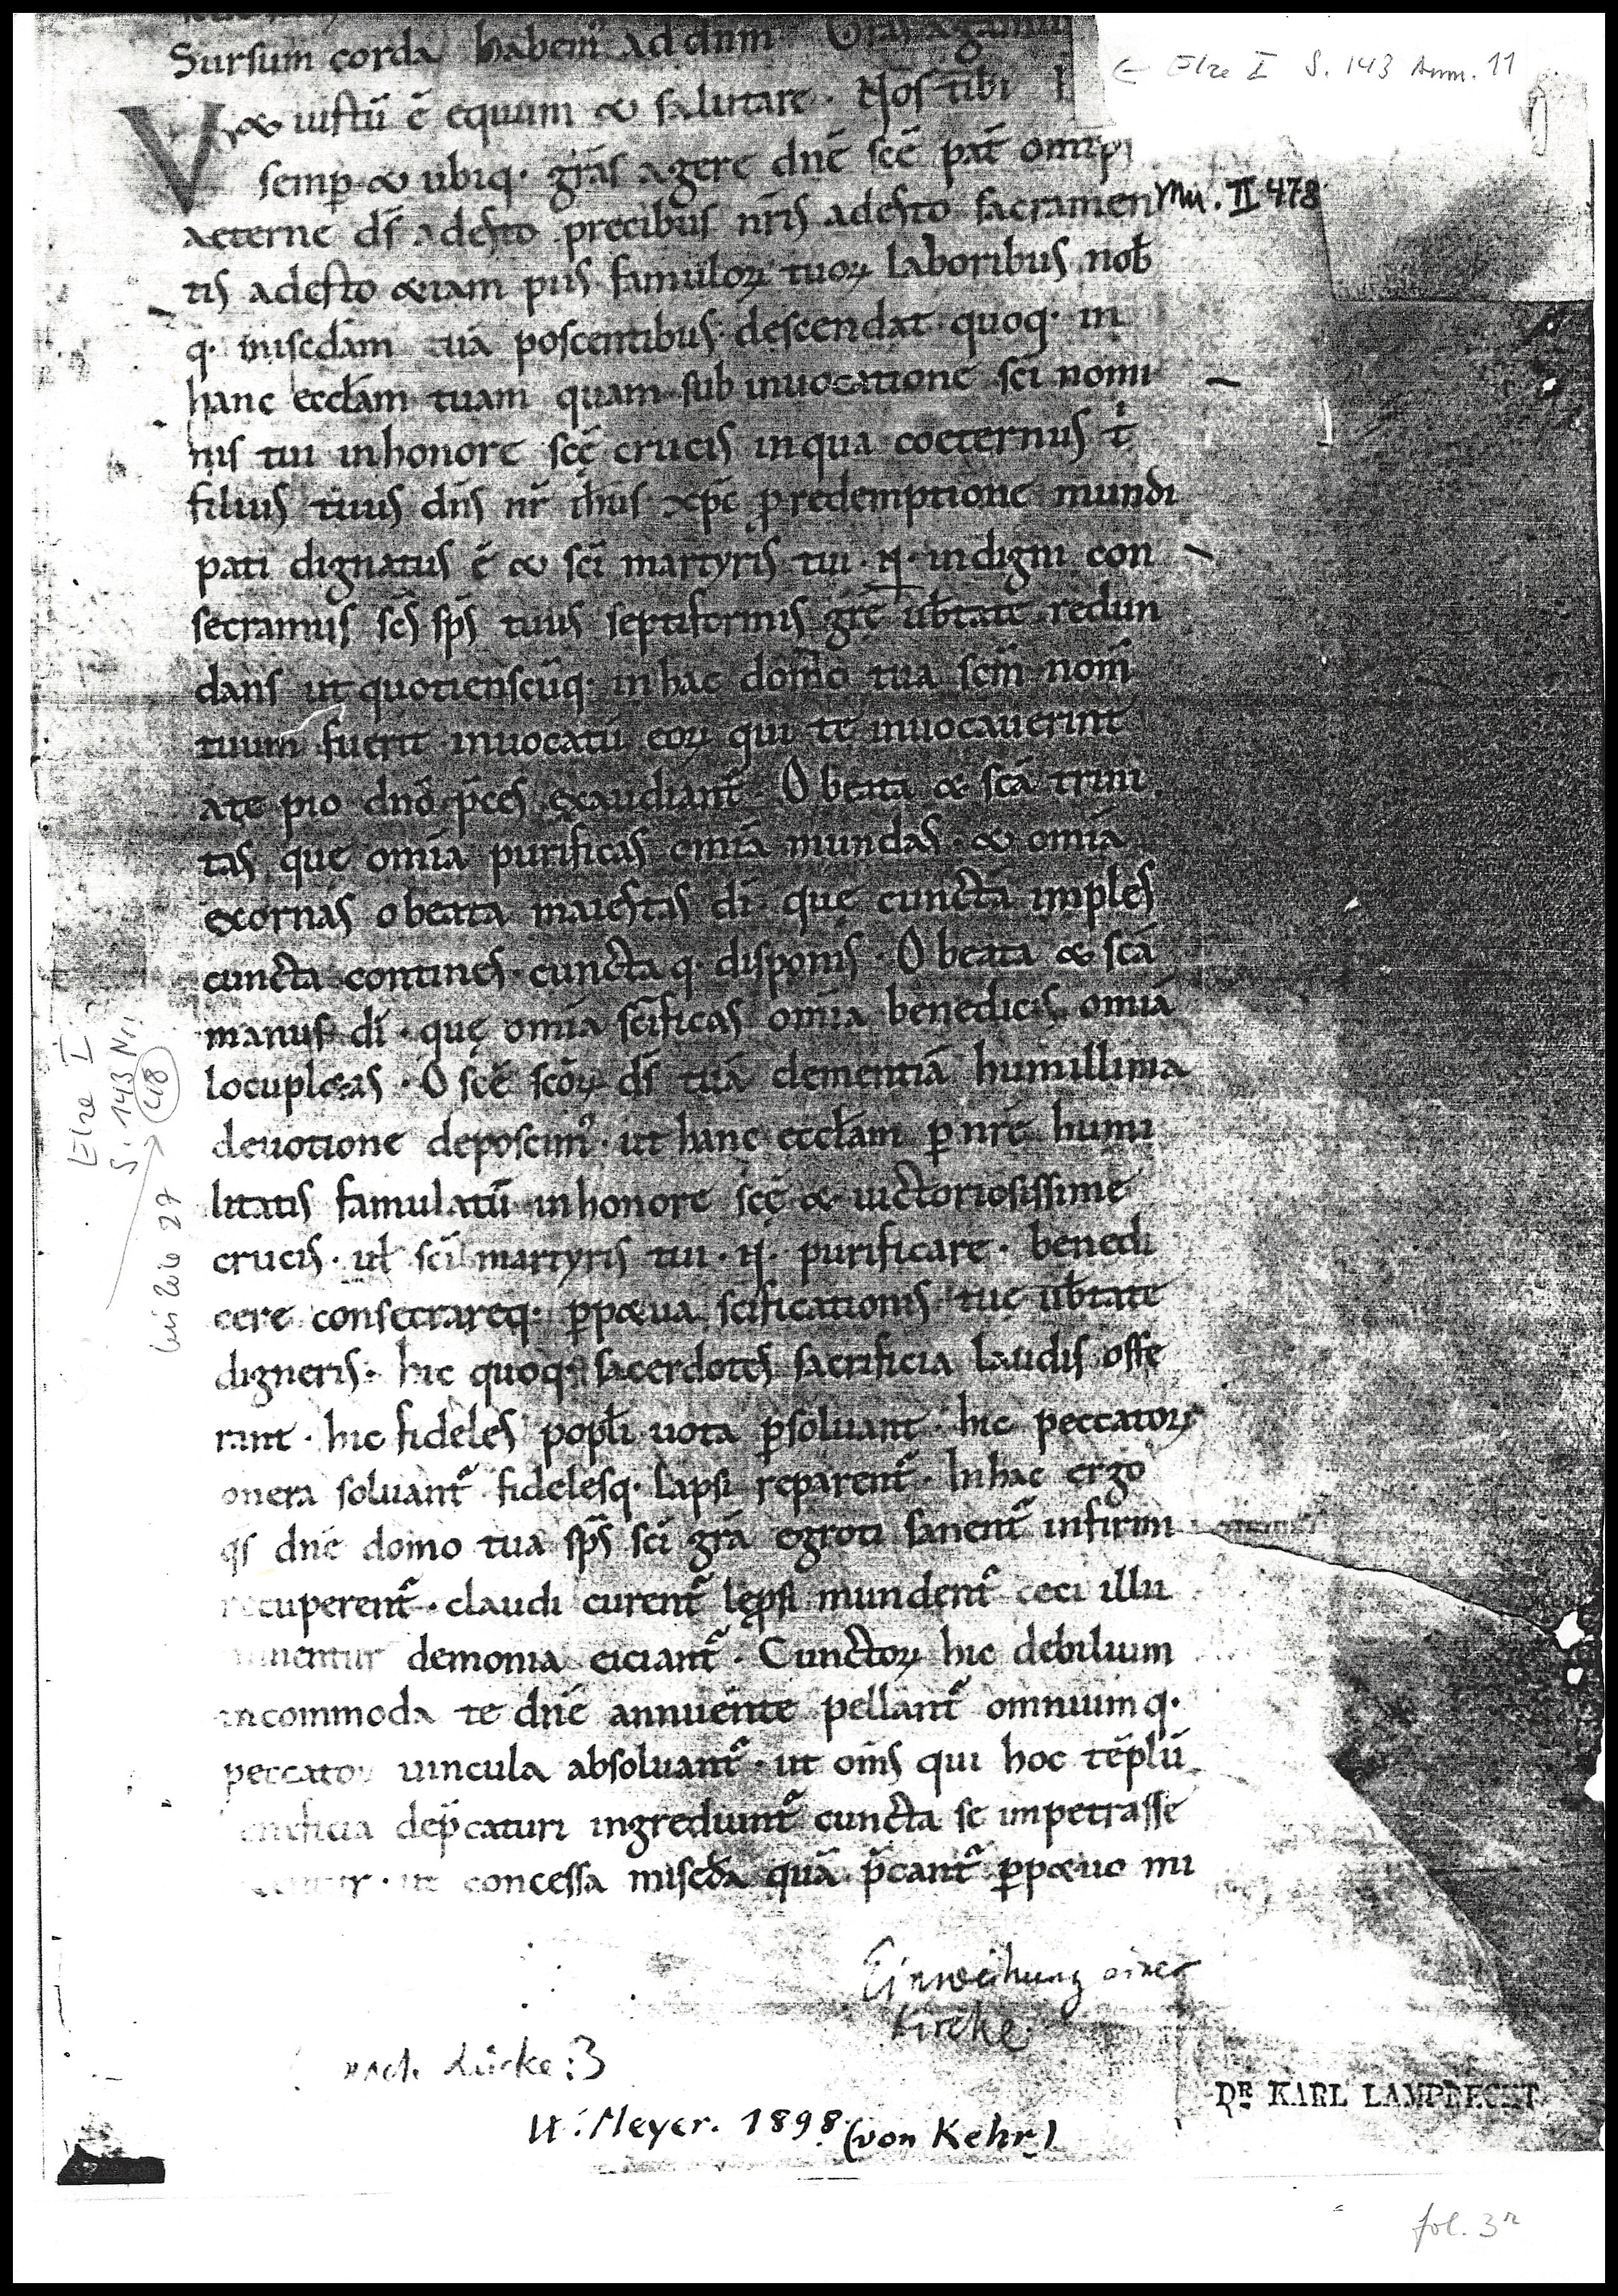 Sursum corda habem᷒ ad dnm̄
← Elze I S. 143 Anm. 11
V& iustū ē equum & salutare. Nos tibi
semp̱ & ubiq· grās agere dn̄e sc̄e pat̄ omp̄
aeterne ds̄ adesto precibus nr̄is adesto sacramen
Mu. II 478
tis adesto &iam piis famuloꝝ tuoꝝ laboribus nob̄
q· misc̄dam tuā poscentibus· descendat quoq· in
hanc eccl̄am tuam quam sub inuocatione sc̄i nomi
nis tui inhonore sc̄ę crucis inqua coeternus t̄
filius tuus dn̄s nr̄ ih̄us xp̄c ꝑredemptione mundi
pati dignatus ē & sc̄i martyris tui · N · indigni con
secramus sc̄s sp̄s tuus septiformis gr̄e ub̄tate redun
dans ut quotienscūq· inhac domo tua sc̄m nom̄
tuum fuerit inuocatū eoꝝ qui te inuocauerint
ate pio dn̄o p̄ces exaudiant᷑ O beata & sc̄a trini
tas que om̄ia purificas om̄ia mundas · & om̄ia
exornas o beata maiestas dī que cuncta imples
cuncta contines · cuncta q· disponis · O beata & sc̄a
manus dī · quę om̄ia sc̄ificas om̄ia benedicis om̄ia
locupl&as · O sc̄e sc̄oꝝ ds̄ tuā clementiā humillima
deuotione deposcim᷒ · ut hanc eccl̄am ꝑ nr̄e humi
litatis famulatū inhonore sc̄ę & uictoriosissime
crucis · ul̄ sc̄i martyris tui · N · purificare · benedi
cere consecrareq· ꝑp&ua sc̄ificationis tue ub̄tate
digneris · hic quoq· sacerdotes sacrificia laudis offe
rant · hic fideles popl̄i uota ꝑsoluant · hic peccatoꝝ
onera soluant᷑ fidelesq· lapsi reparent᷑ · Inhac ergo
qs̄ dn̄e domo tua sp̄s sc̄i gr̄a egroti sanent᷑ infirmi
recuperent᷑ · claudi curent᷑ lep̱si mundent᷑ ceci illu
minentur demonia eiciant᷑ · Cunctoꝝ hic debilium
incommoda te dn̄e annuente pellant᷑ omniumq·
peccatoꝝ uincula absoluant᷑ · ut om̄s qui hoc tēplū
dep̄caturi ingrediunt᷑ cuncta se impetrasse
ut concessa misc̄da quā p̄cant᷑ ꝑp&uo mi
Elze I
S. 143 Nr.
48
bis Zeile 27
Einweihung einer
Kirche.
nach Lücke: 3
W. Meyer. 1898. (von Kehr.)
DR. KARL LAMPRECHT
fol. 3r